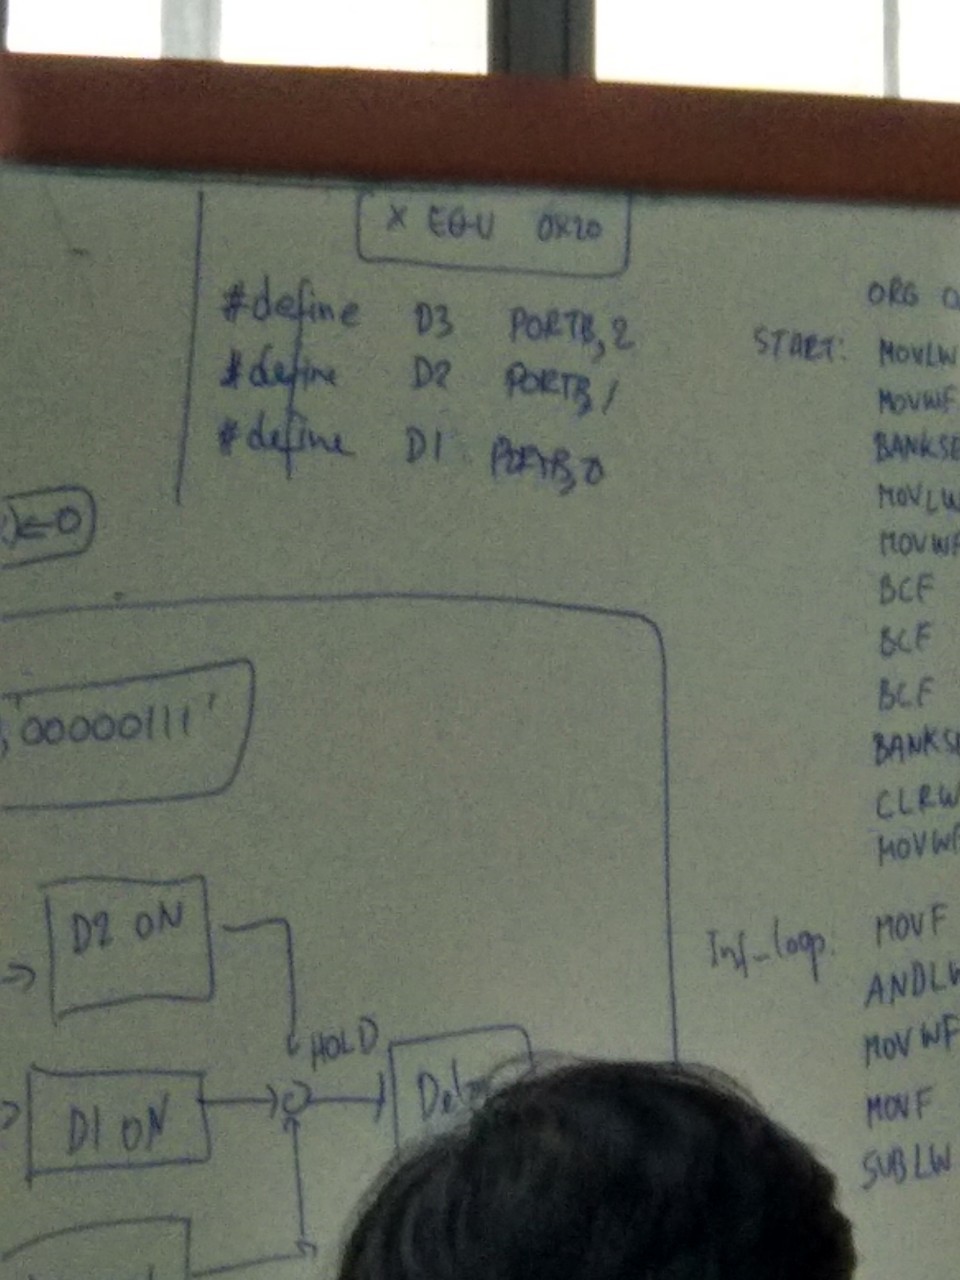 X EQU 0X20
#define D3 PORTB,2
#define D2 PORTB,1
#define D1 PORTB,0
←0
'00000111'
D2 ON
HOLD
D1 ON
ORG
START: MOVLW
MOVWF
BANKSE
MOVLW
MOVWF
BCF
BCF
BCF
BANKSE
CLRW
MOVWF
Inf_loop: MOVF
ANDLW
MOVWF
MOVF
SUBLW